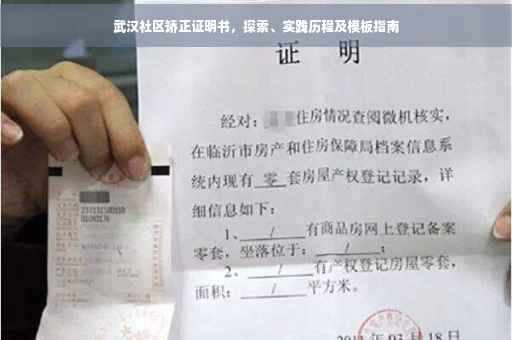 武汉社区矫正证明书，探索、实践历程及模板指南
证 明
经对：住房情况查阅微机核实，
在临沂市房产和住房保障局档案信息系
统内现有 零 套房屋产权登记记录，详
细信息如下：
1、 / 有商品房网上登记备案
零套，坐落位于： / ；
2、 / 有产权登记房屋零套，
面积： / 平方米。
月 18 日